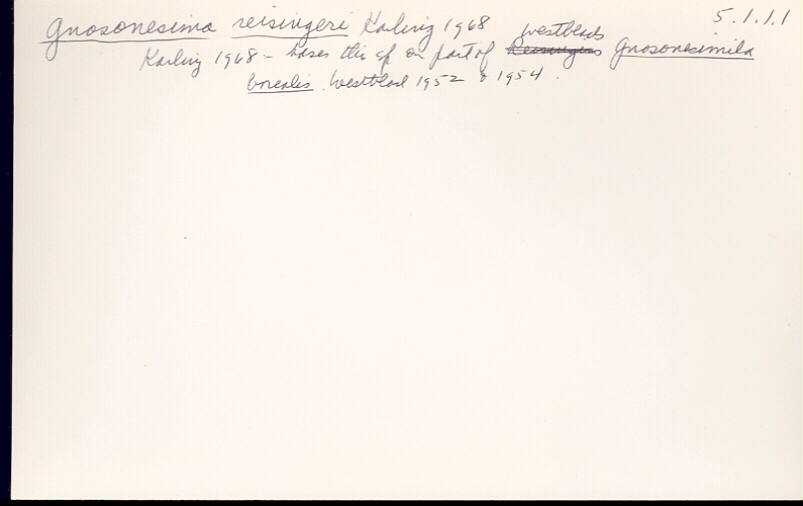 5.1.1.1
Gnosonesima reisingeri Karling 1968
Karling 1968 - bases this sp on part of Westblads Gnosonesimila
borealis Westblad 1952 & 1954.